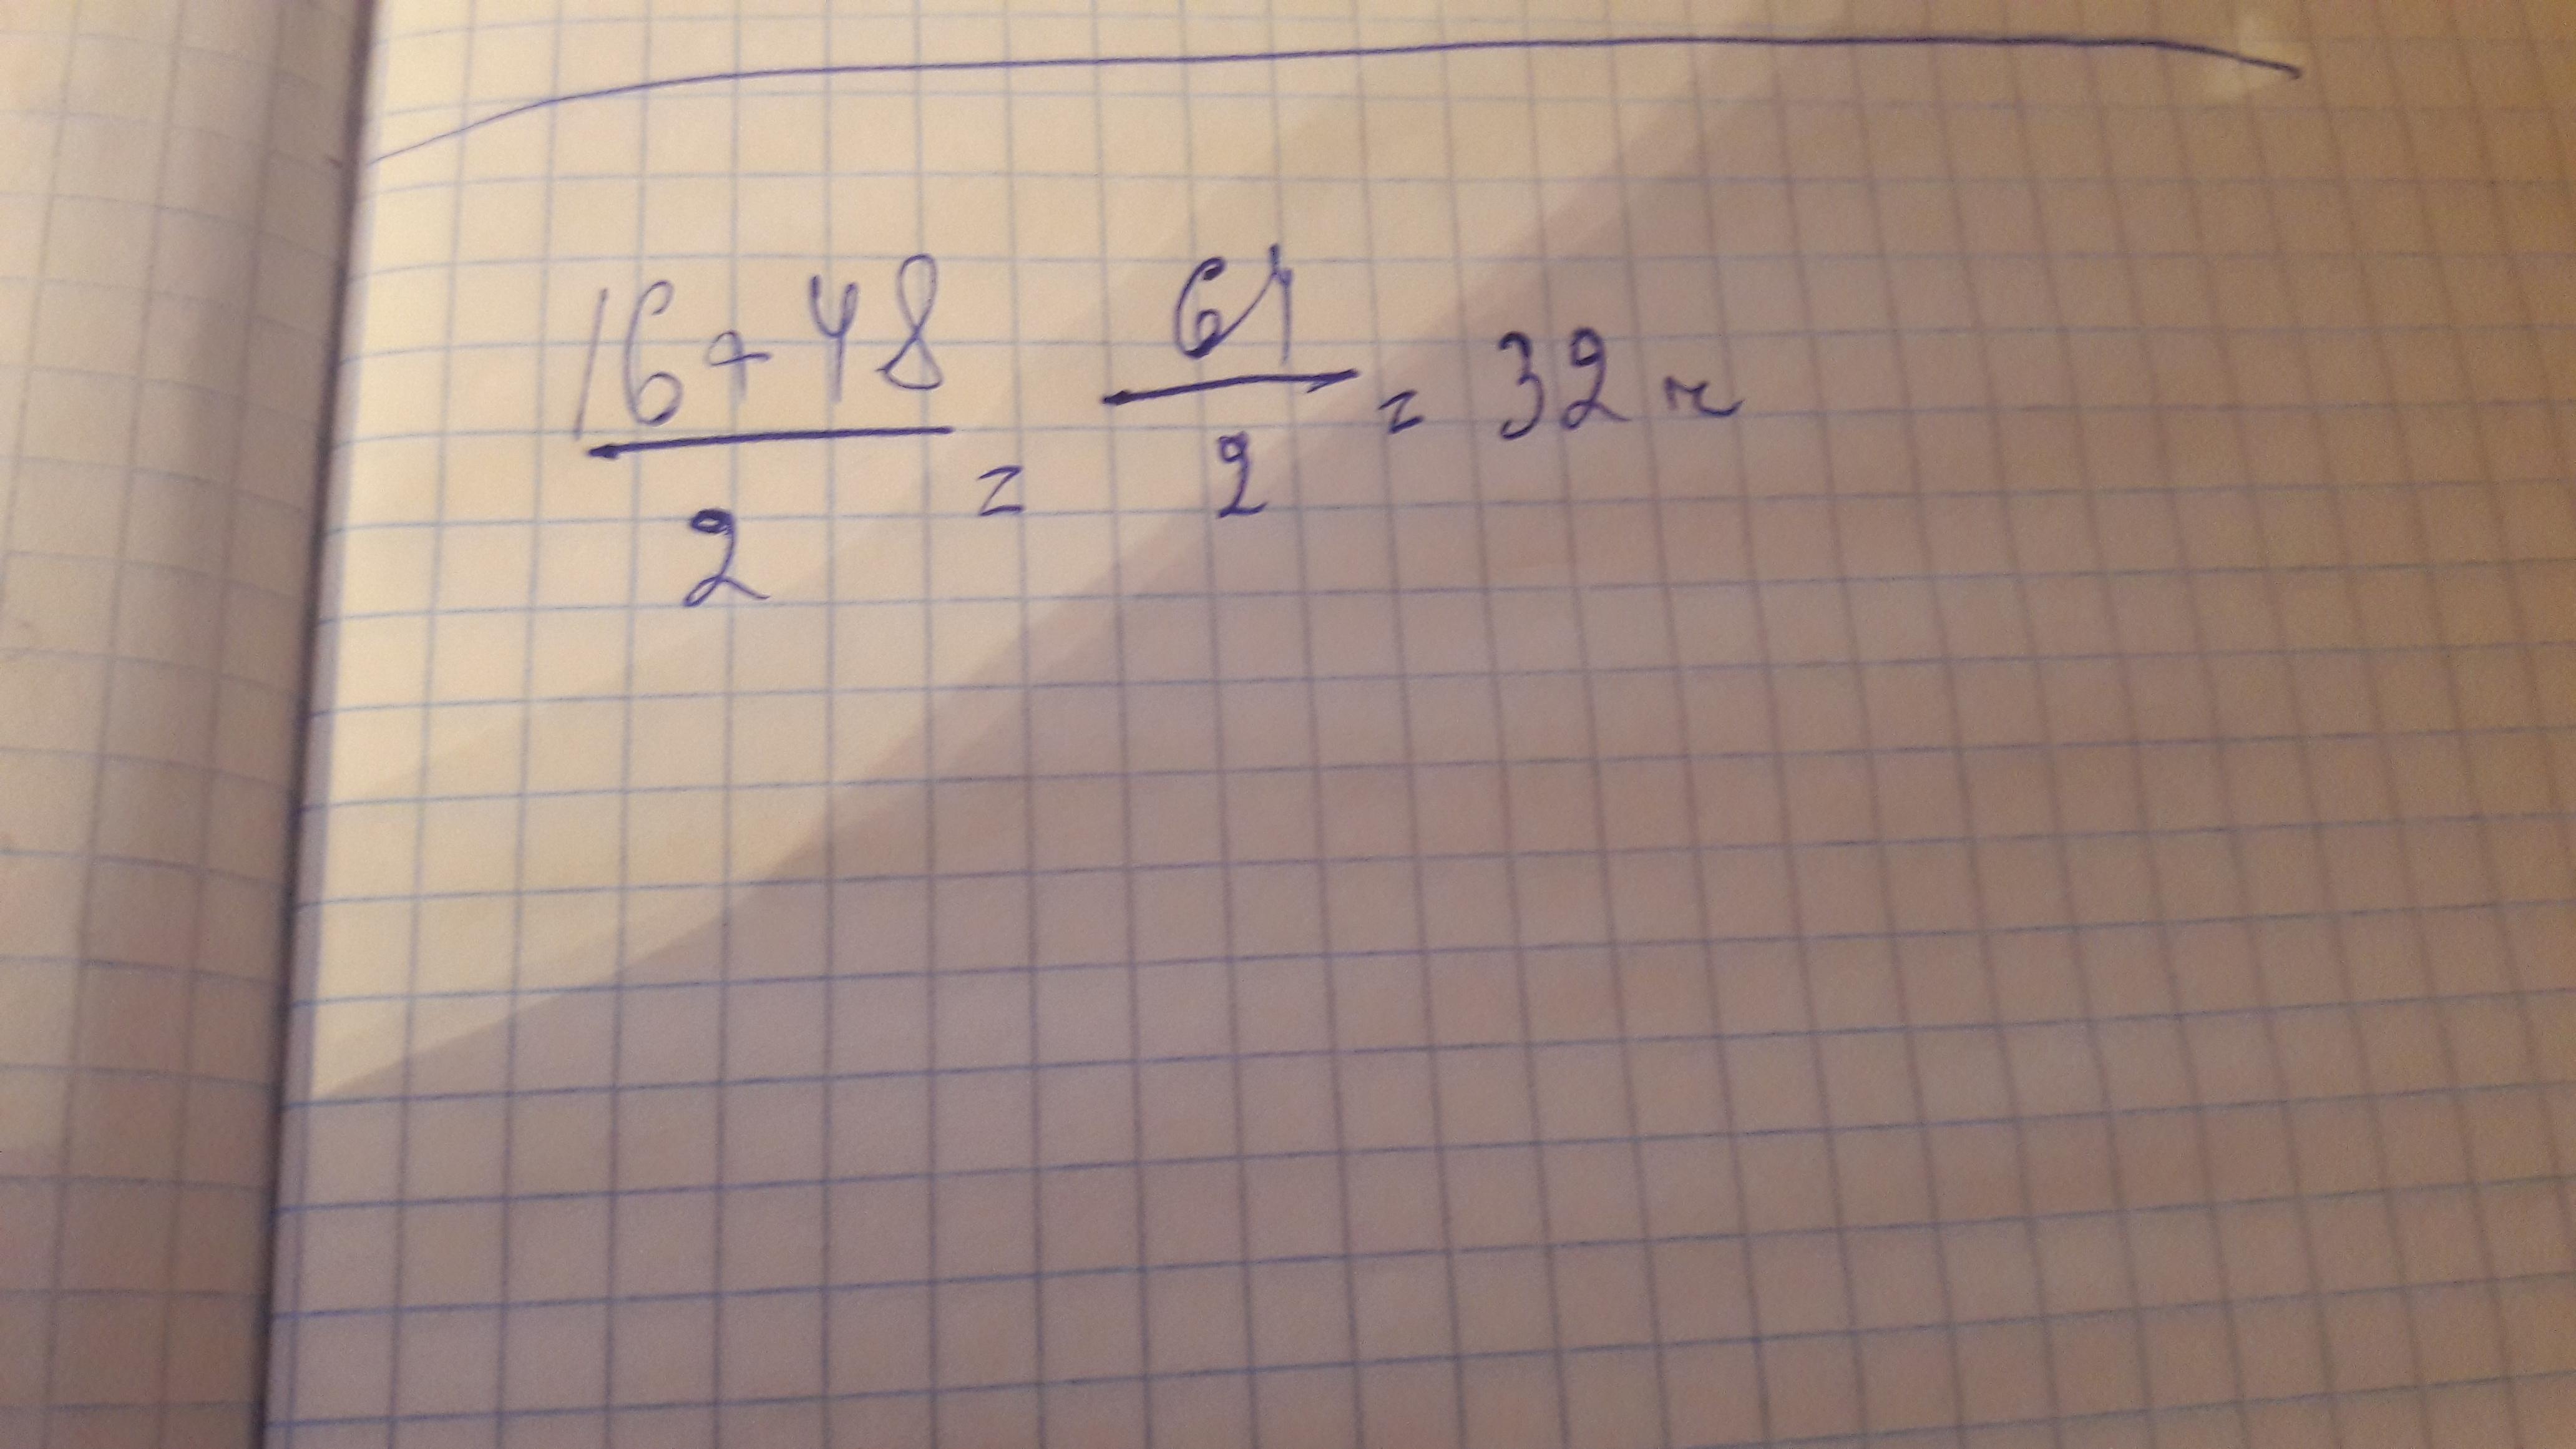 16+48/2 = 64/2 = 32 г